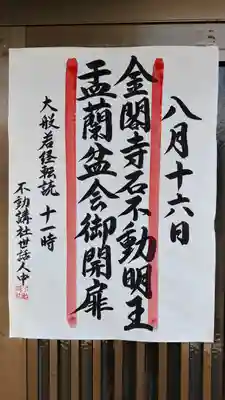 八月十六日
金閣寺石不動明王
盂蘭盆会御開扉
大般若経転読 十一時
不動講社世話人中